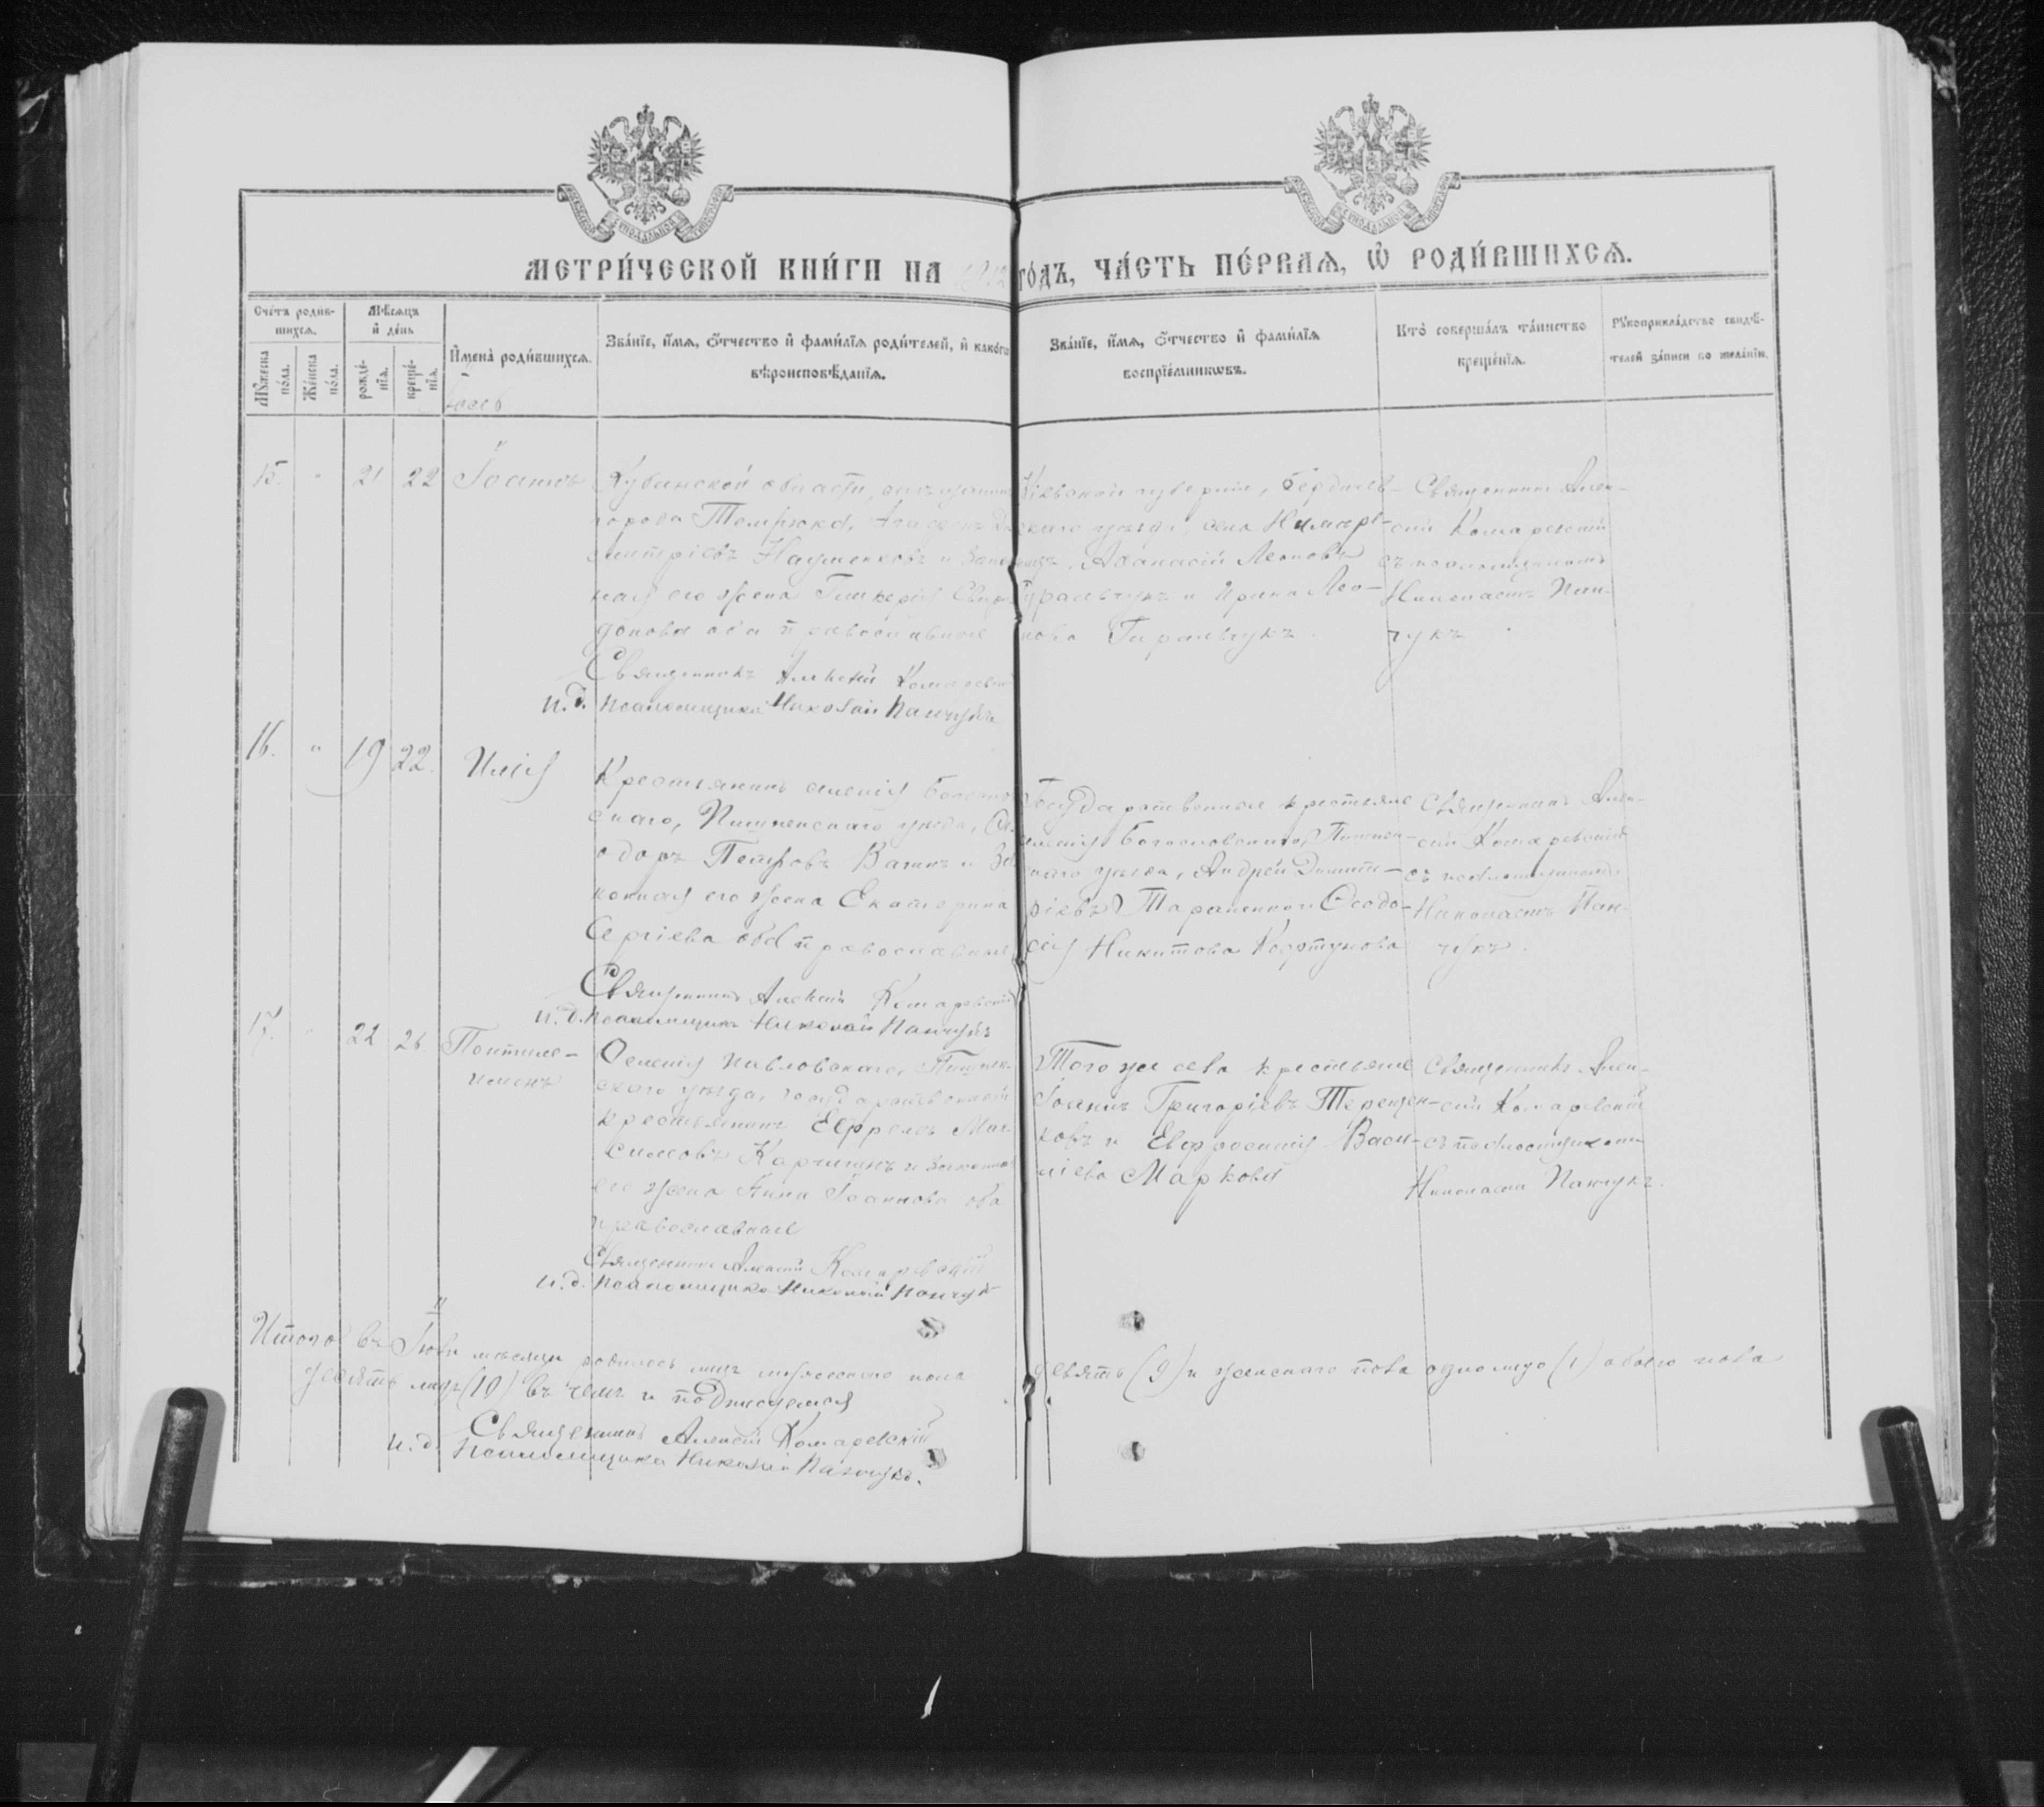 МЕТРИ́ЧЕСКОЙ КНИ́ГИ НА ГО́ДЪ, ЧА́СТЬ ПЕ́РВАѦ, Ѡ҆ РОДИ́ВШИХСѦ.
Сче́тъ роди́в-
шихсѧ.
Мꙋ́жеска по́ла.
Же́нска по́ла.
Мѣ́сѧцъ и҆ де́нь
рожде́-
нїѧ.
креще́-
нїѧ.
И҆мена̀ роди́вшихсѧ.
Зва́нїе, и҆́мѧ, ѻ҆́тчество и҆ фами́лїѧ роди́телей, и҆ како́гѡ
вѣроисповѣ́данїѧ.
Зва́нїе, и҆́мѧ, ѻ҆́тчество и҆ фами́лїѧ
воспрїе́мникѡвъ.
Кто̀ соверша́лъ та́инство
креще́нїѧ.
Рꙋкоприкла́дство свидѣ́-
телей за́писи по жела́нїю.
15. " 21 22 Іоаннъ
Кубанской области,
города Темрюка,
митріевъ Науменковъ и закон-
ная его жена Гликерія Спири-
донова оба православные
Священникъ Алексій Комаревскій
и.д. Псаломщика Николай Панчукъ
Кіевской губерніи, Бердичев-
скаго уѣзда, села
Аѳанасій Леоновъ
и Ирина Лео-
нова
Священникъ Алек-
сій Комаревскій
съ псаломщикомъ
Николаемъ Пан-
чукъ
16. " 19 22. Илія
Крестьянинъ селенія Богослов-
скаго, Пишпекскаго уѣзда, Ѳе-
одоръ Петровъ и За-
конная его жена Екатерина
Сергіева оба православные
Священникъ Алексій Комаревскій
и.д. Псаломщика Николай Панчукъ
Государственные крестьяне
селенія Богословскаго, Пишпек-
скаго уѣзда, Андрей Димит-
ріевъ Тараненко и Ѳеодо-
сія Никитова Ковтунова
Священникъ Алек-
сій Комаревскій
съ псаломщикомъ
Николаемъ Пан-
чукъ.
17. " 22 26. Пантеле-
имонъ
Селенія Павловскаго, Пишпек-
скаго уѣзда, государственный
крестьянинъ Ефремъ Мак-
симовъ и законная
его жена Анна Іоаннова оба
православные
Священникъ Алексій Комаревскій
и.д. Псаломщика Николай Панчукъ
Того же села крестьяне
Іоаннъ Григоріевъ Терещен-
ковъ и Евфросинія Васи-
ліева Маркова
Священникъ Алек-
сій Комаревскій
съ псаломщикомъ
Николаемъ Панчукъ.
Итого въ Іюлѣ мѣсяцѣ родилось лицъ мужескаго пола девять (9) и женскаго пола одно лицо (1) обоего пола
десять лицъ (10) въ чемъ и подписуемся
Священникъ Алексій Комаревскій
и.д. Псаломщика Николай Панчукъ.